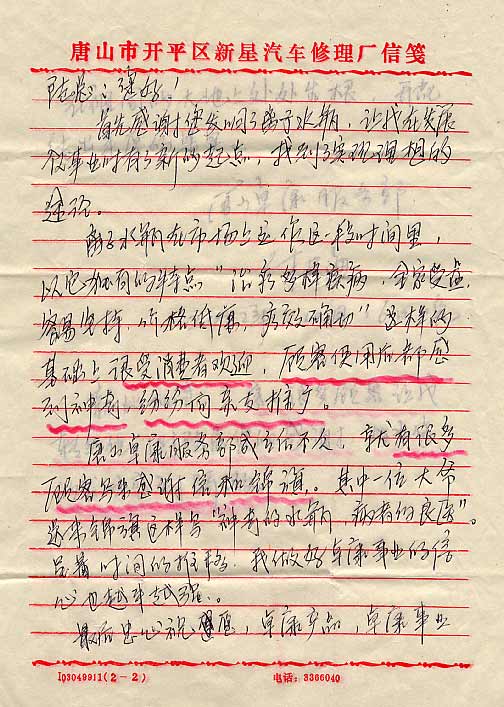 唐山市开平区新星汽车修理厂信笺
陆总：您好！
首先感谢您发明了离子水瓶，让我在发展
事业时有了新的起点，找到了实现理想的
途径。
离子水瓶在市场上工作这一段时间里，
以它独有的特点“治疗多样疾病，全家受益，
容易坚持，价格低廉，疗效确切”这样的
基础上很受消费者欢迎，顾客使用后都感
到神奇 纷纷向亲友推广。
康 卓康服务部成立不久 就有很多
顾客写来感谢信和锦旗。其中一位大爷
送来锦旗这样写“神奇的水瓶，病者的良医”。
随着时间的推移 我做好卓康事业的信
心也越来越强。
最后忠心祝愿，卓康产品，卓康事业
I03049911(2-2)
电话：3366040